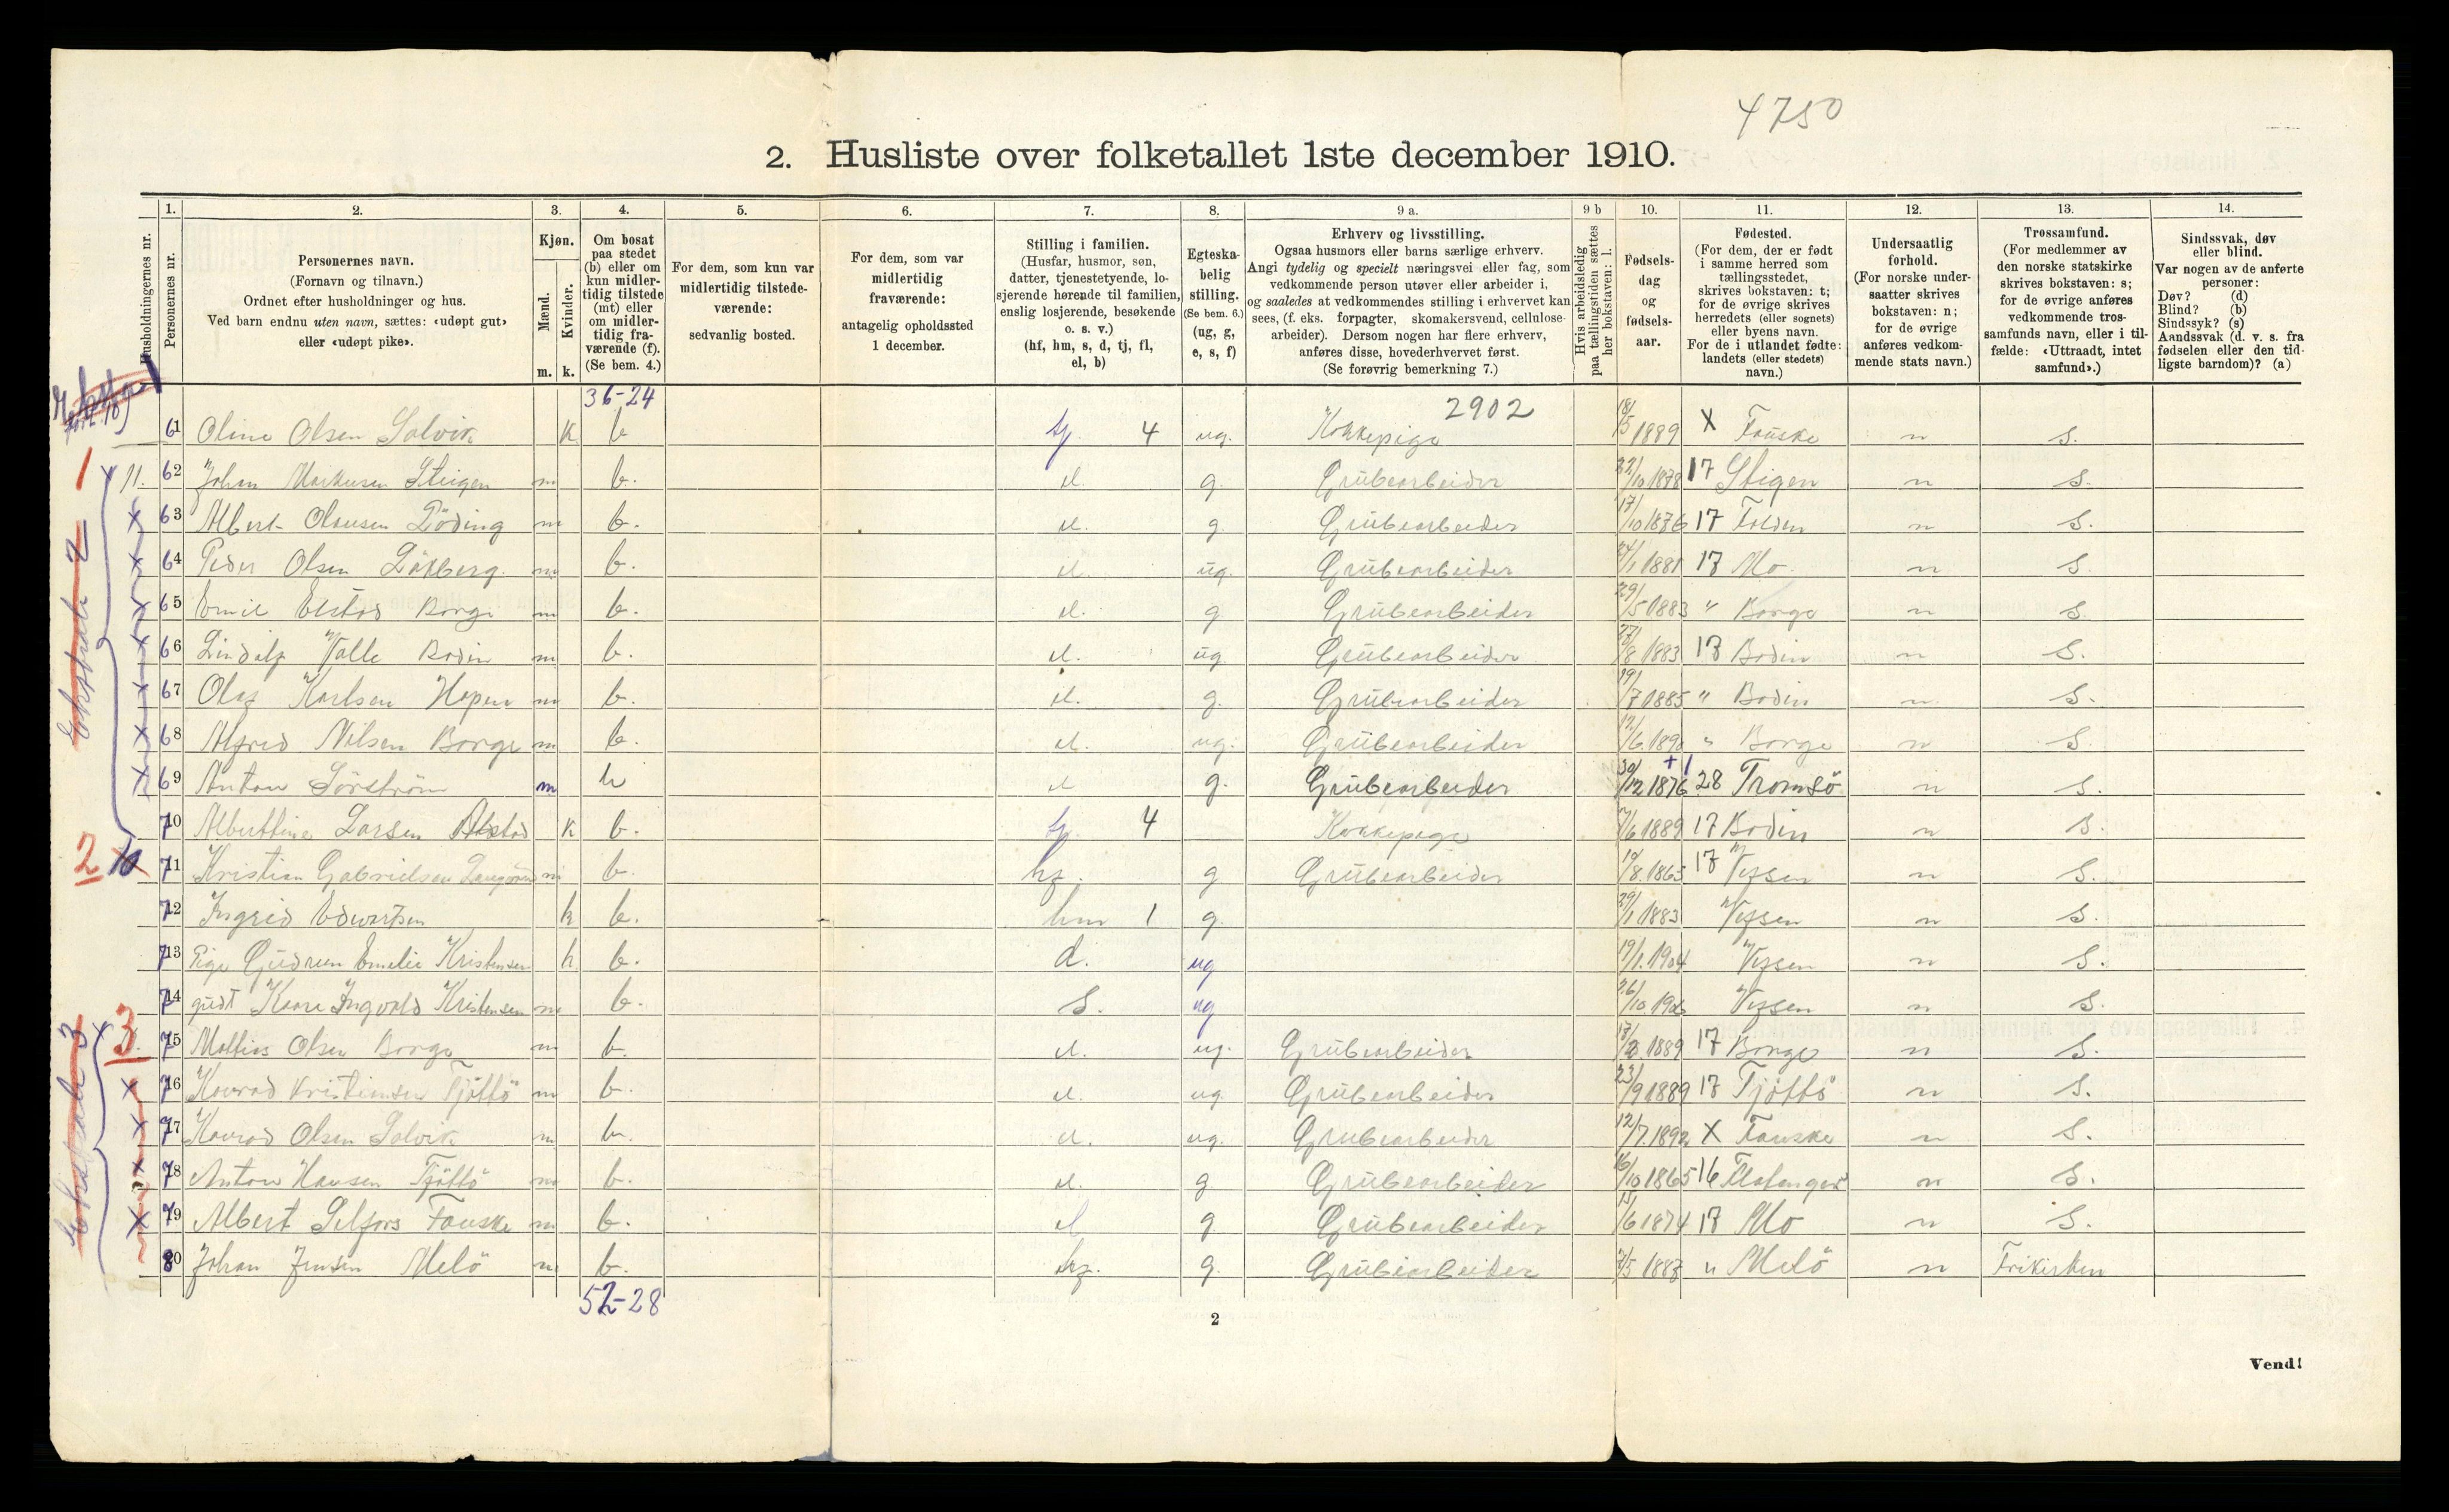 4750
2. Husliste over folketallet 1ste december 1910.
Husholdningernes nr.
1.
Personernes nr.
2.
Personernes navn.
(Fornavn og tilnavn.)
Ordnet efter husholdninger og hus.
Ved barn endnu uten navn, sættes: «udøpt gut»
eller «udøpt pike».
3.
Kjøn.
Mænd.
Kvinder.
m. k.
4.
Om bosat
paa stedet
(b) eller om
kun midler-
tidig tilstede
(mt) eller
om midler-
tidig fra-
værende (f).
(Se bem. 4.)
5.
For dem, som kun var
midlertidig tilstede-
værende:
sedvanlig bosted.
6.
For dem, som var
midlertidig
fraværende:
antagelig opholdssted
1 december.
7.
Stilling i familien.
(Husfar, husmor, søn,
datter, tjenestetyende, lo-
sjerende hørende til familien,
enslig losjerende, besøkende
o. s. v.)
(hf, hm, s, d, tj, fl,
el, b)
8.
Egteska-
belig
stilling.
(Se bem. 6.)
(ug, g,
e, s, f)
9 a.
Erhverv og livsstilling.
Ogsaa husmors eller barns særlige erhverv.
Angi tydelig og specielt næringsvei eller fag, som
vedkommende person utøver eller arbeider i,
og saaledes at vedkommendes stilling i erhvervet kan
sees, (f. eks. forpagter, skomakersvend, cellulose-
arbeider). Dersom nogen har flere erhverv,
anføres disse, hovederhvervet først.
(Se forøvrig bemerkning 7.)
9 b
Hvis arbeidsledig
paa tællingstiden sættes
her bokstaven: l.
10.
Fødsels-
dag
og
fødsels-
aar.
11.
Fødested.
(For dem, der er født
i samme herred som
tællingsstedet,
skrives bokstaven: t;
for de øvrige skrives
herredets (eller sognets)
eller byens navn.
For de i utlandet fødte:
landets (eller stedets)
navn.)
12.
Undersaatlig
forhold.
(For norske under-
saatter skrives
bokstaven: n;
for de øvrige
anføres vedkom-
mende stats navn.)
13.
Trossamfund.
(For medlemmer av
den norske statskirke
skrives bokstaven: s;
for de øvrige anføres
vedkommende tros-
samfunds navn, eller i til-
fælde: «Uttraadt, intet
samfund».)
14.
Sindssvak, døv
eller blind.
Var nogen av de anførte
personer:
Døv? (d)
Blind? (b)
Sindssyk? (s)
Aandssvak (d. v. s. fra
fødselen eller den tid-
ligste barndom)? (a)
36-24
2902
61 Oline Olsen Solvik k b tj. 4 ug. Kokkepige 18/5 1889 X Fauske n s.
1 11. 62 Johan Markusen Steigen m b. el. g. Grubearbeider 22/10 1878 17 Stigen n s.
X 63 Albert Olausen Röding m b. el. g. Grubearbeider 17/10 1876 17 Folden n s.
X 64 Peder Olsen Dåxberg m b. el. ug. Grubearbeider 24/1 1881 17 Mo n s.
X 65 Emil Elstad Borge m b. el. g. Grubearbeider 29/5 1883 " Borge n s.
X 66 Lindalf Valle Bodin m b. el. ug. Grubearbeider 27/8 1883 17 Bodin n s.
X 67 Olaf Karlsen Hopen m b. el. g. Grubearbeider 19/7 1885 " Bodin n s.
X 68 Alfred Nilsen Borge m b. el. ug. Grubearbeider 12/6 1890 " Borge n s.
X 69 Anton Sörström m b el g. Grubearbeider 30/12 1876 28 Tromsö n s.
70 Alberttine Larsen Alstad k b. tj. 4 Kokkepige 7/6 1889 17 Bodin n s.
2 71 Kristian Gabrielsen m b. hf. g Grubearbeider 19/8 1865 17 Vefsen n s.
72 Ingrid Edvartsen k b. hm 1 g. 29/1 1883 Vefsen n s.
73 Pige Gudrun Emelie Kristensen k b. d. ug 19/1 1904 Vefsen n s.
74 gudt Kaare Ingvald Kristensen m b. s. ug 26/10 1906 Vefsen n s.
3 75 Mathias Olsen Borge m b. el. ug. Grubearbeider 1889 17 Borge n s.
X 76 Konrad Kristiansen Tjöttö m b. el. ug. Grubearbeider 23/9 1889 17 Tjöttö n s.
X 77 Konrad Olsen Solvik m b. el. ug. Grubearbeider 12/7 1892 X Fauske n s.
X 78 Anton Hansen Tjöttö m b. el. g Grubearbeider 16/10 1865 16 n s.
X 79 Albert Selfors Fauske m b. el g. Grubearbeider 15/6 1874 17 Mo n s.
80 Johan Jensen Melö m b. hf. g. Grubearbeider 7/5 1887 " Melö n Frikirken
52-28
2
Vend!